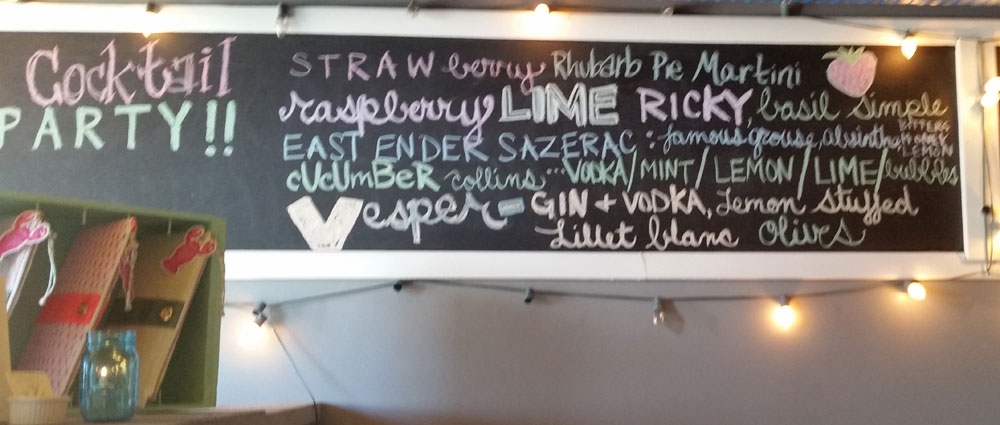 Cocktail
PARTY!!
STRAWberry Rhubarb Pie Martini
raspberry LIME RICKY, basil simple
EAST ENDER SAZERAC : famous grouse, absinthe, BITTERS HONEY LEMON
cUcUmBeR collins... VODKA/MINT/LEMON/LIME/bubbles
Vesper - GIN + VODKA, Lemon stuffed
Lillet blanc Olives